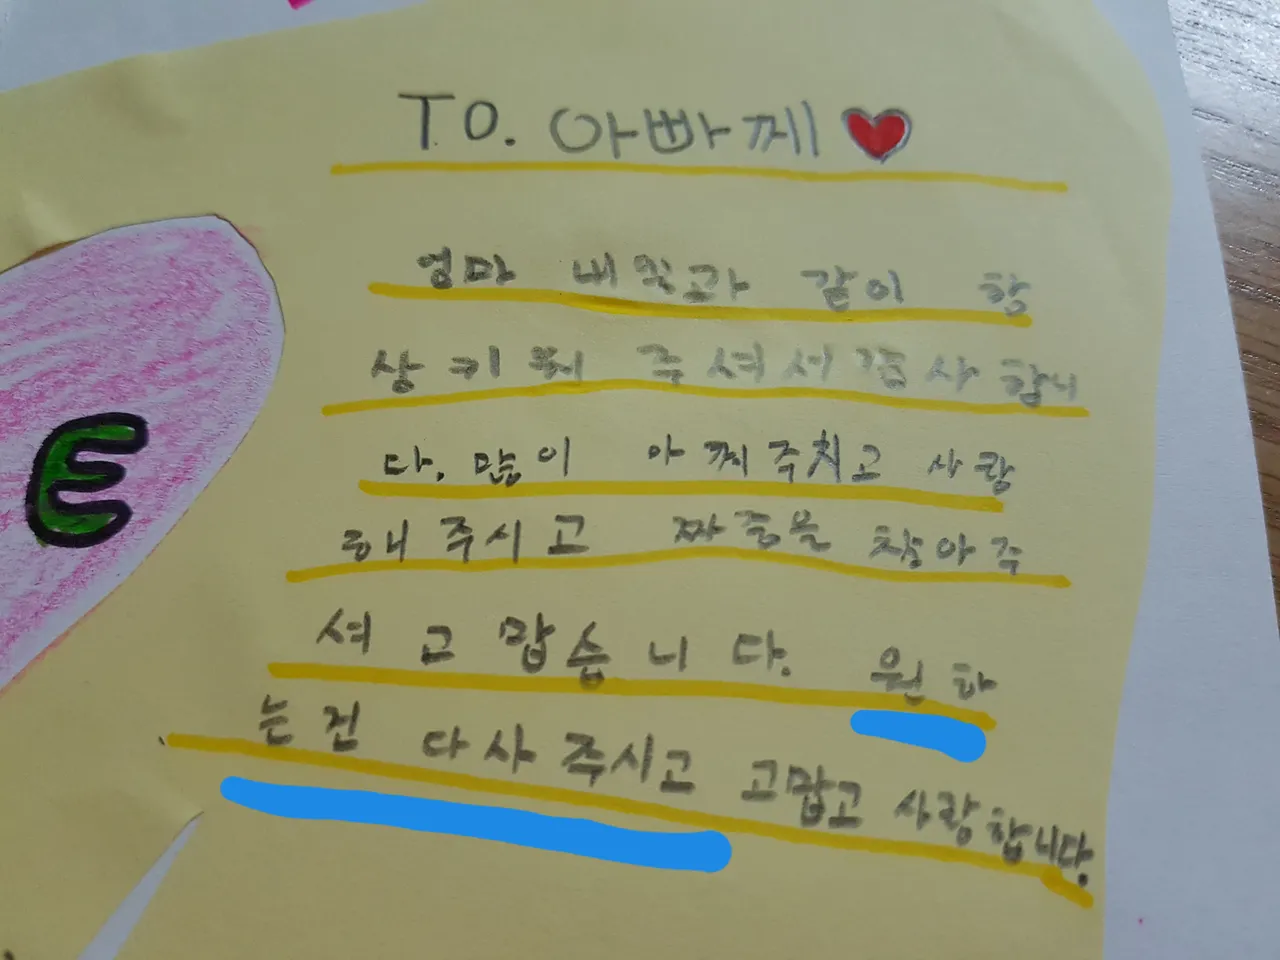 TO. 아빠께
E
엄마 내 과 같이 항
상 키워 주셔서 감사 합니
다. 많이 아껴주시고 사랑
해 주시고 짜증을 참아 주
셔 고맙습니다. 원하
는 건 다 사 주시고 고맙고 사랑합니다.